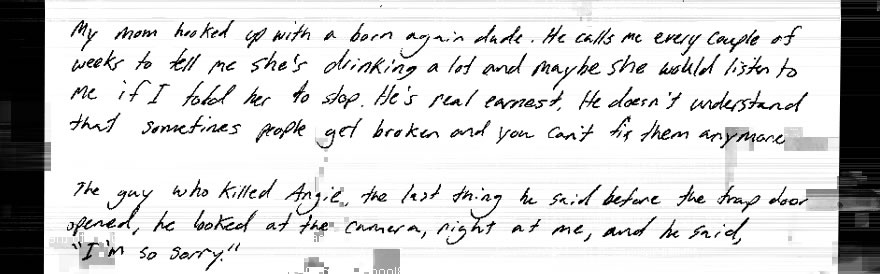 My mom hooked up with a born again dude. He calls me every couple of
weeks to tell me she's drinking a lot and maybe she would listen to
me if I told her to stop. He's real earnest. He doesn't understand
that sometimes people get broken and you can't fix them anymore
The guy who killed Angie, the last thing he said before the trap door
opened, he looked at the camera, right at me, and he said,
"I'm so sorry."